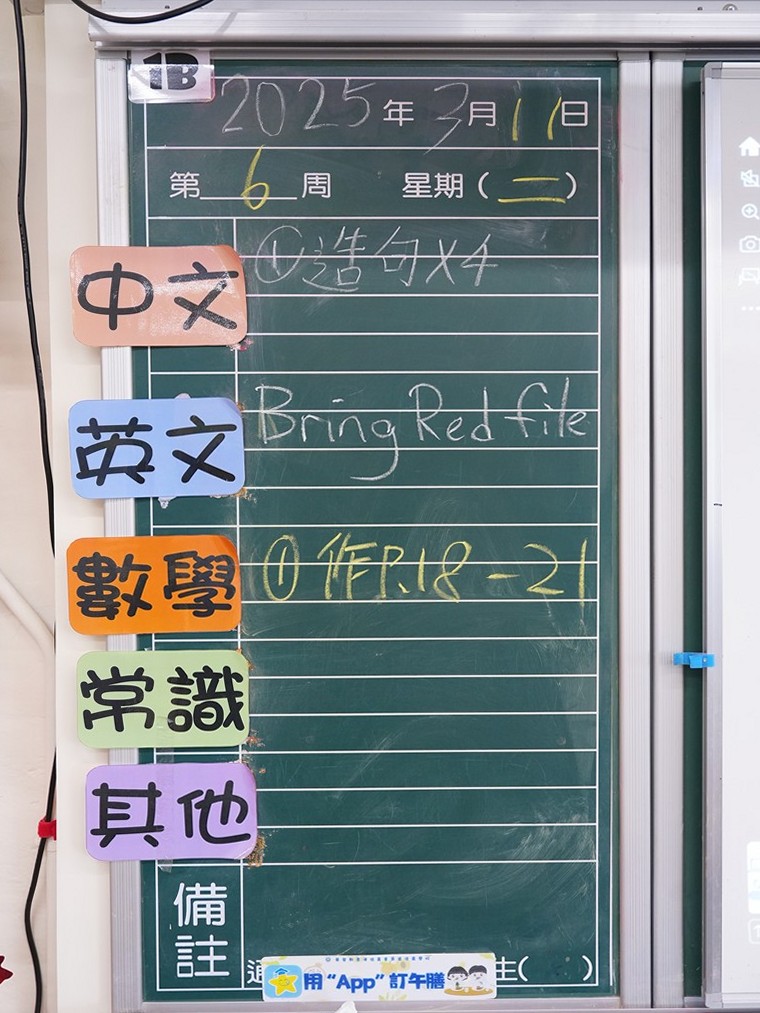 1B
2025年3月11日
第6周 星期（二）
中文 ①造句X4
英文 Bring Red file
數學 ①作P.18-21
常識
其他
備註
用“App”訂午膳 生( )